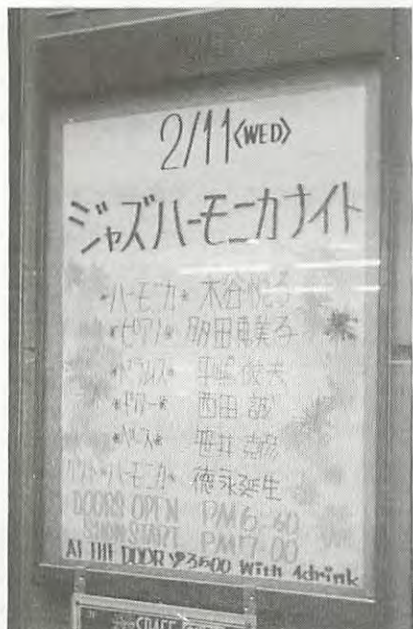 2/11<WED>
ジャズハーモニカナイト
*ハーモニカ* 木谷
*ピアノ* 多田恵美子
*ドラムス* 平
*ギター* 西田
*ベース* 笹井
ゲスト*ハーモニカ* 徳永延生
DOORS OPEN PM6:
START PM7:00
AT THE DOOR ¥3500 With 1drink